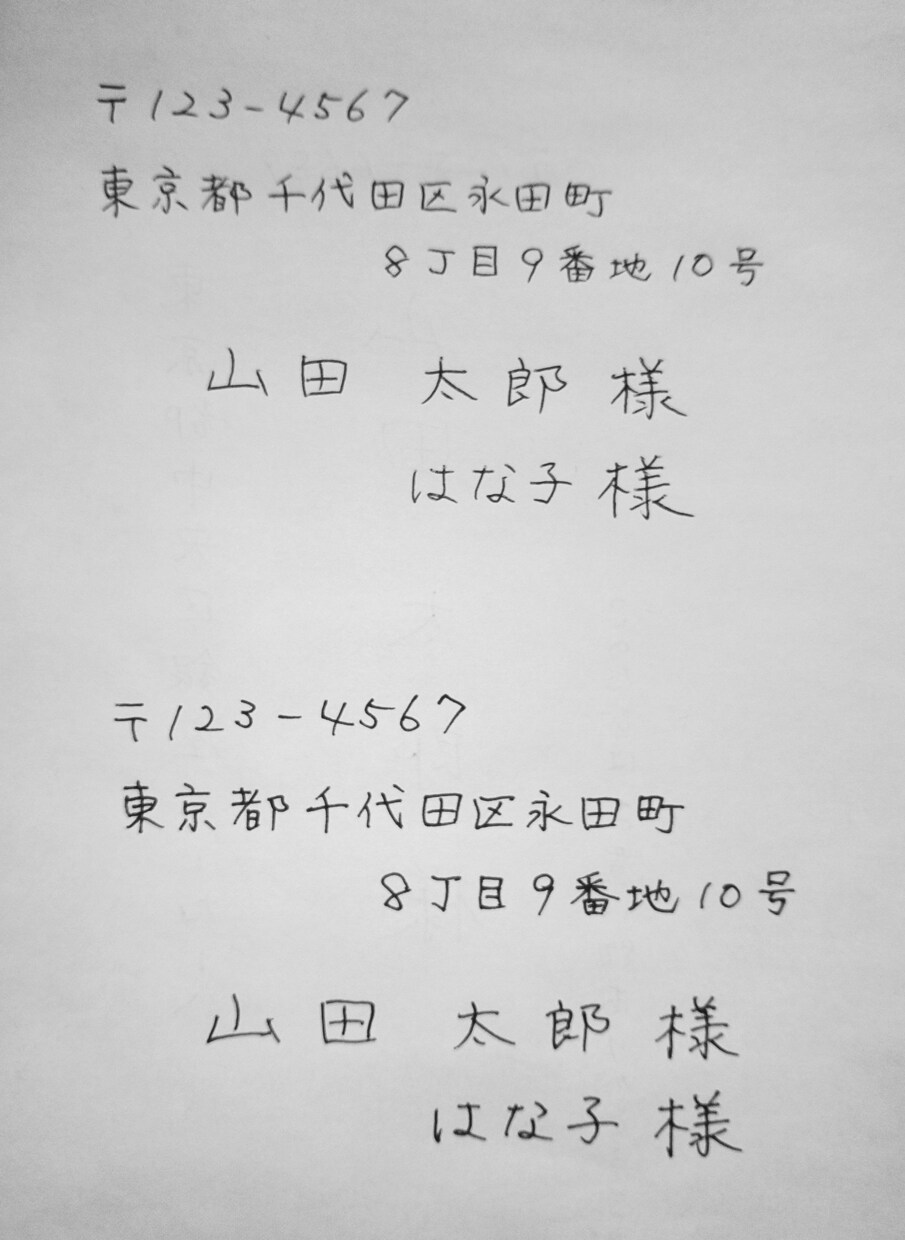 〒123-4567
東京都千代田区永田町
8丁目9番地10号
山田 太郎 様
はな子 様
〒123-4567
東京都千代田区永田町
8丁目9番地10号
山田 太郎 様
はな子 様